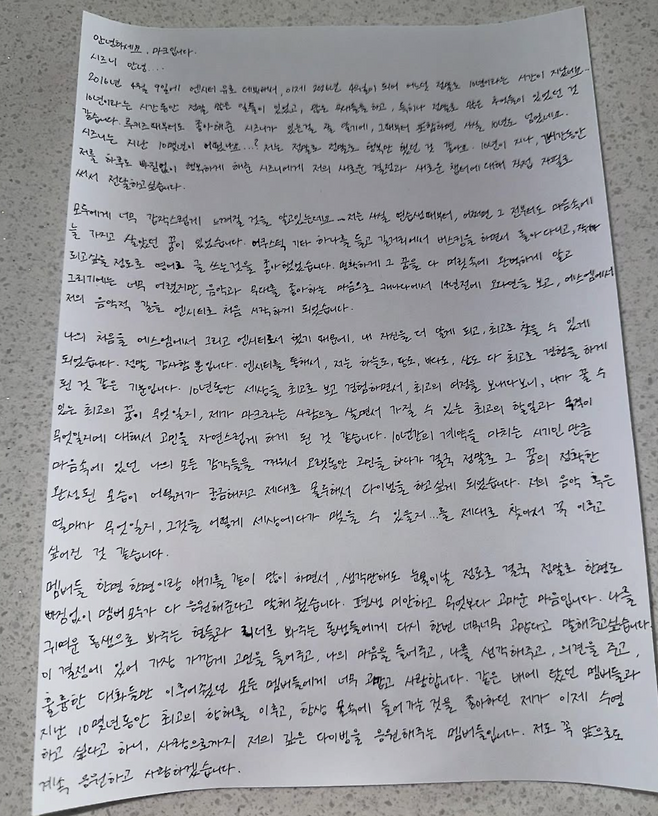 안녕하세요, 마크입니다.
시즈니 안녕...
2016년 4월 9일에 엔시티 유로 데뷔해서, 이제 2026년 4월이 되어 어느덧 정말로 10년이라는 시간이 지났네요..
10년이라는 시간동안 정말 많은 일들이 있었고, 많은 무대들을 하고, 특히나 정말로 많은 추억들이 있었던 것
같습니다. 루키즈때부터도 좋아해준 시즈니가 있는걸 잘 알기에, 그때부터 포함하면 사실 10년도 넘었네요.
시즈니는 지난 10몇년이 어땠나요...? 저는 정말로 정말로 행복만 했던 것 같아요. 10년이 지나, 긴시간동안
저를 하루도 빠짐없이 행복하게 해준 시즈니에게 저의 새로운 결정과 새로운 챕터에 대해 직접 자필로
써서 전달하고싶습니다.
모두에게 너무 갑작스럽게 느껴질 것을 알고있는데요... 저는 사실 연습생때부터, 어쩌면 그 전부터도 마음속에
늘 가지고 살았던 꿈이 있었습니다. 어쿠스틱 기타 하나를 들고 길거리에서 버스킹을 하면서 돌아다니고,
되고싶을 정도로 영어로 글 쓰는것을 좋아했었습니다. 명확하게 그 꿈을 다 머릿속에 완벽하게 알고
그리기에는 너무 어렸지만, 음악과 무대를 좋아하는 마음으로 캐나다에서 14년전에 오디션을 보고, 에스엠에서
저의 음악적 길을 엔시티로 처음 시작하게 되었습니다.
나의 처음을 에스엠에서 그리고 엔시티로서 했기 때문에, 내 자신을 더 알게 되고, 최고로 찾을 수 있게
되었습니다. 정말 감사할 뿐입니다. 엔시티를 통해서, 저는 하늘도, 땅도, 바다도, 산도 다 최고로 경험을 하게
된 것 같은 기분입니다. 10년동안 세상을 최고로 보고 경험하면서, 최고의 여정을 보내다보니, 내가 꿀 수
있는 최고의 꿈이 무엇일지, 제가 마크라는 사람으로 살면서 가질 수 있는 최고의 할일과 목적이
무엇일지에 대해서 고민을 자연스럽게 하게 된 것 같습니다. 10년간의 계약을 마치는 시기인 만큼
마음속에 있던 나의 모든 감각들을 깨워서 오랫동안 고민을 하다가 결국 정말로 그 꿈의 정확한
완성된 모습이 어떨지가 궁금해지고 제대로 몰두해서 다이빙을 하고싶게 되었습니다. 저의 음악 혹은
열매가 무엇일지, 그것을 어떻게 세상에다가 맺을 수 있을지...를 제대로 찾아서 꼭 이루고
싶어진 것 같습니다.
멤버들 한명 한명이랑 얘기를 같이 많이 하면서, 생각만해도 눈물이날 정도로 결국 정말로 한명도
빠짐없이 멤버 모두가 다 응원해준다고 말해줬습니다. 평생 미안하고 무엇보다 고마운 마음입니다. 나를
귀여운 동생으로 봐주는 형들과 리더로 봐주는 동생들에게 다시 한번 너무너무 고맙다고 말해주고싶습니다.
이 결정에 있어 가장 가깝게 고민을 들어주고, 나의 마음을 들어주고, 나를 생각해주고, 의견을 주고,
훌륭한 대화들만 이루어줬던 모든 멤버들에게 너무 고맙고 사랑합니다. 같은 배에 탔던 멤버들과
지난 10몇년동안 최고의 항해를 이루고, 항상 물속에 들어가는 것을 좋아하던 제가 이제 수영
하고 싶다고 하니, 사랑으로까지 저의 깊은 다이빙을 응원해주는 멤버들입니다. 저도 꼭 앞으로도
계속 응원하고 사랑하겠습니다.